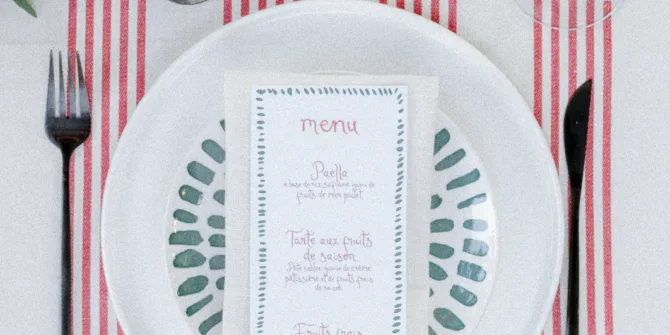 menu
Paella
à base de riz safrané garni de
fruits de mer poulet
Tarte aux fruits
de saison
Pâte sablée garnie de crème
pâtissière et de fruits frais
Fruits frais